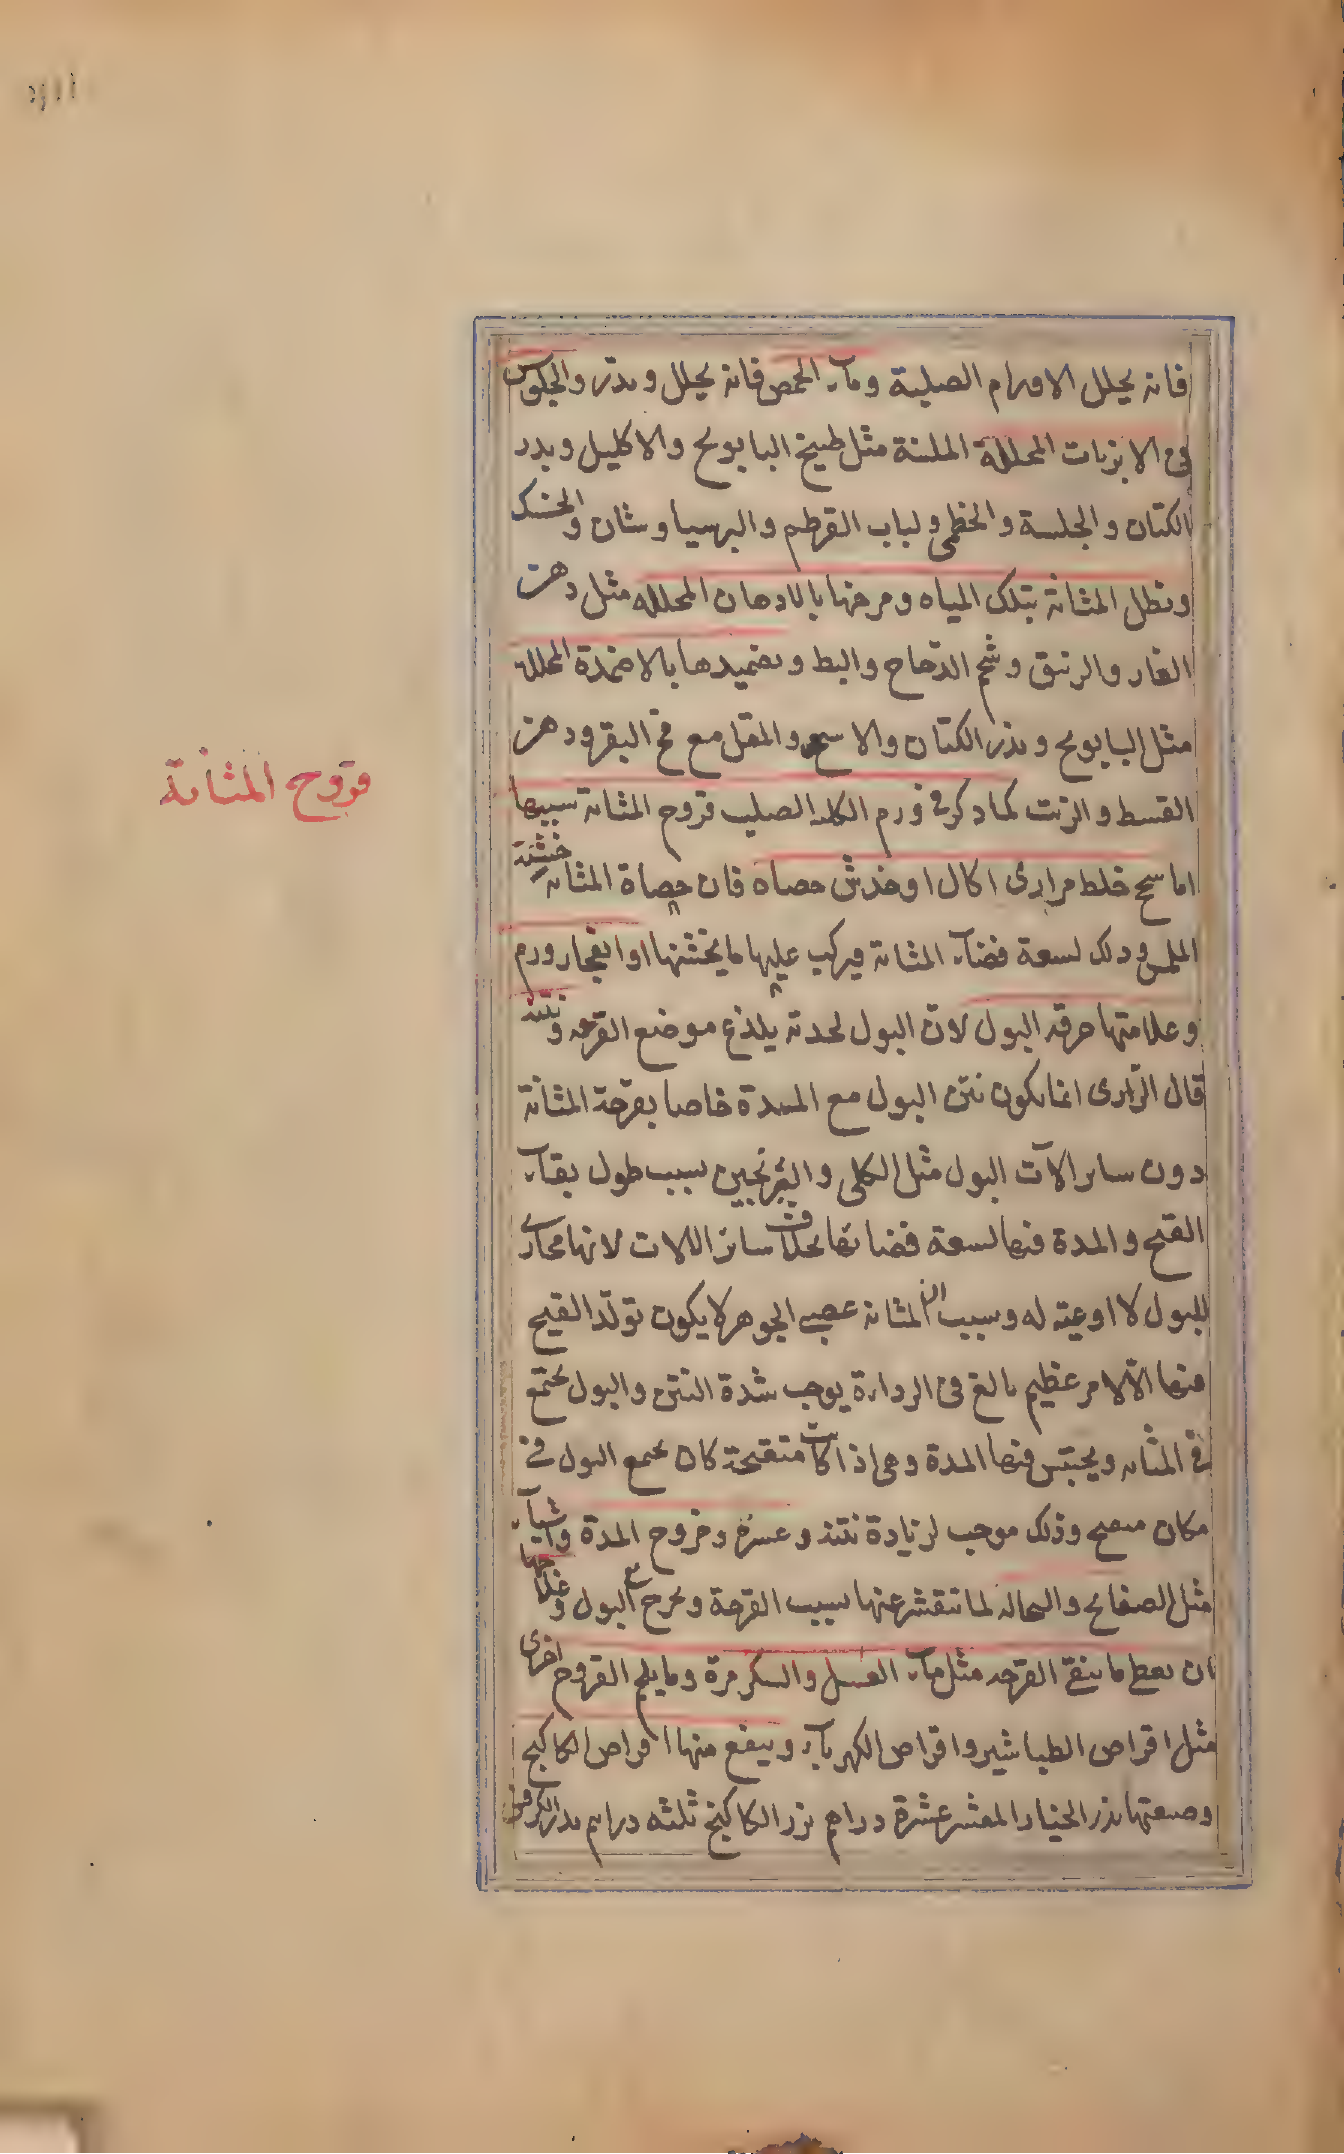 فانه يحلل الاورام الصلبة وماء الحمص فانه يحلل ويدر والجلوس
فى الابزنات المحللة الملينة مثل طبيخ البابونج والاكليل وبذر
الكتان والحلبة والخطمى ولباب القرطم والبرسياوشان والحسك
ونطل المثانة بتلك المياه ومرخها بالادهان المحللة مثل دهن
الغار والزنبق وشحم الدجاج والبط وتضميدها بالاضمدة المحللة
مثل البابونج وبذر الكتان والاشج والمقل مع مخ البقر ودهن
القسط والزيت كما ذكر فى ورم الكلية الصلب قروح المثانة سببها
قروح المثانة
اما سحج خلط مرارى اكال او خدش حصاه فان حصاة المثانة خشنة
الملمس وذلك لسعة فضاء المثانة فيركب عليها ما يخشنها او انفجار ورم
وعلامتها حرقة البول لان البول لحدته يلذع موضع القرحة ونتنه
قال الرازى انما يكون نتن البول مع المدة خاصا بقرحة المثانة
دون ساير الآت البول مثل الكلى والبربخين بسبب طول بقاء
القيح والمدة فيها لسعة فضائها بخلاف سائر الالات لانها مجارى
للبول لا اوعية له وبسبب ان المثانة عصبى الجوهر لا يكون تولد القيح
فيها الا لامر عظيم بالغ فى الرداءة يوجب شدة النتن والبول يجتمع
فى المثانه ويحتبس فيها المدة وهى اذا كانت متقيحة كان يجتمع البول فى
مكان متقيح وذلك موجب لزيادة نتنه وعسره وخروج المدة واشياء
مثل الصفايح والنخالة لما تنقشر عنها بسبب القرحة ويخرج مع البول وعلاجها
ان يعطى ما ينقى القرحه مثل ماء العسل والسكر مرة وما يلحم القروح اخرى
مثل اقراص الطباشير واقراص الكهرباء وينفع منها اقراص الكاكنج
وصنعتها بذر الخيار المقشر عشرة دراهم بزر الكاكنج ثلثه دراهم بذر الكرفس